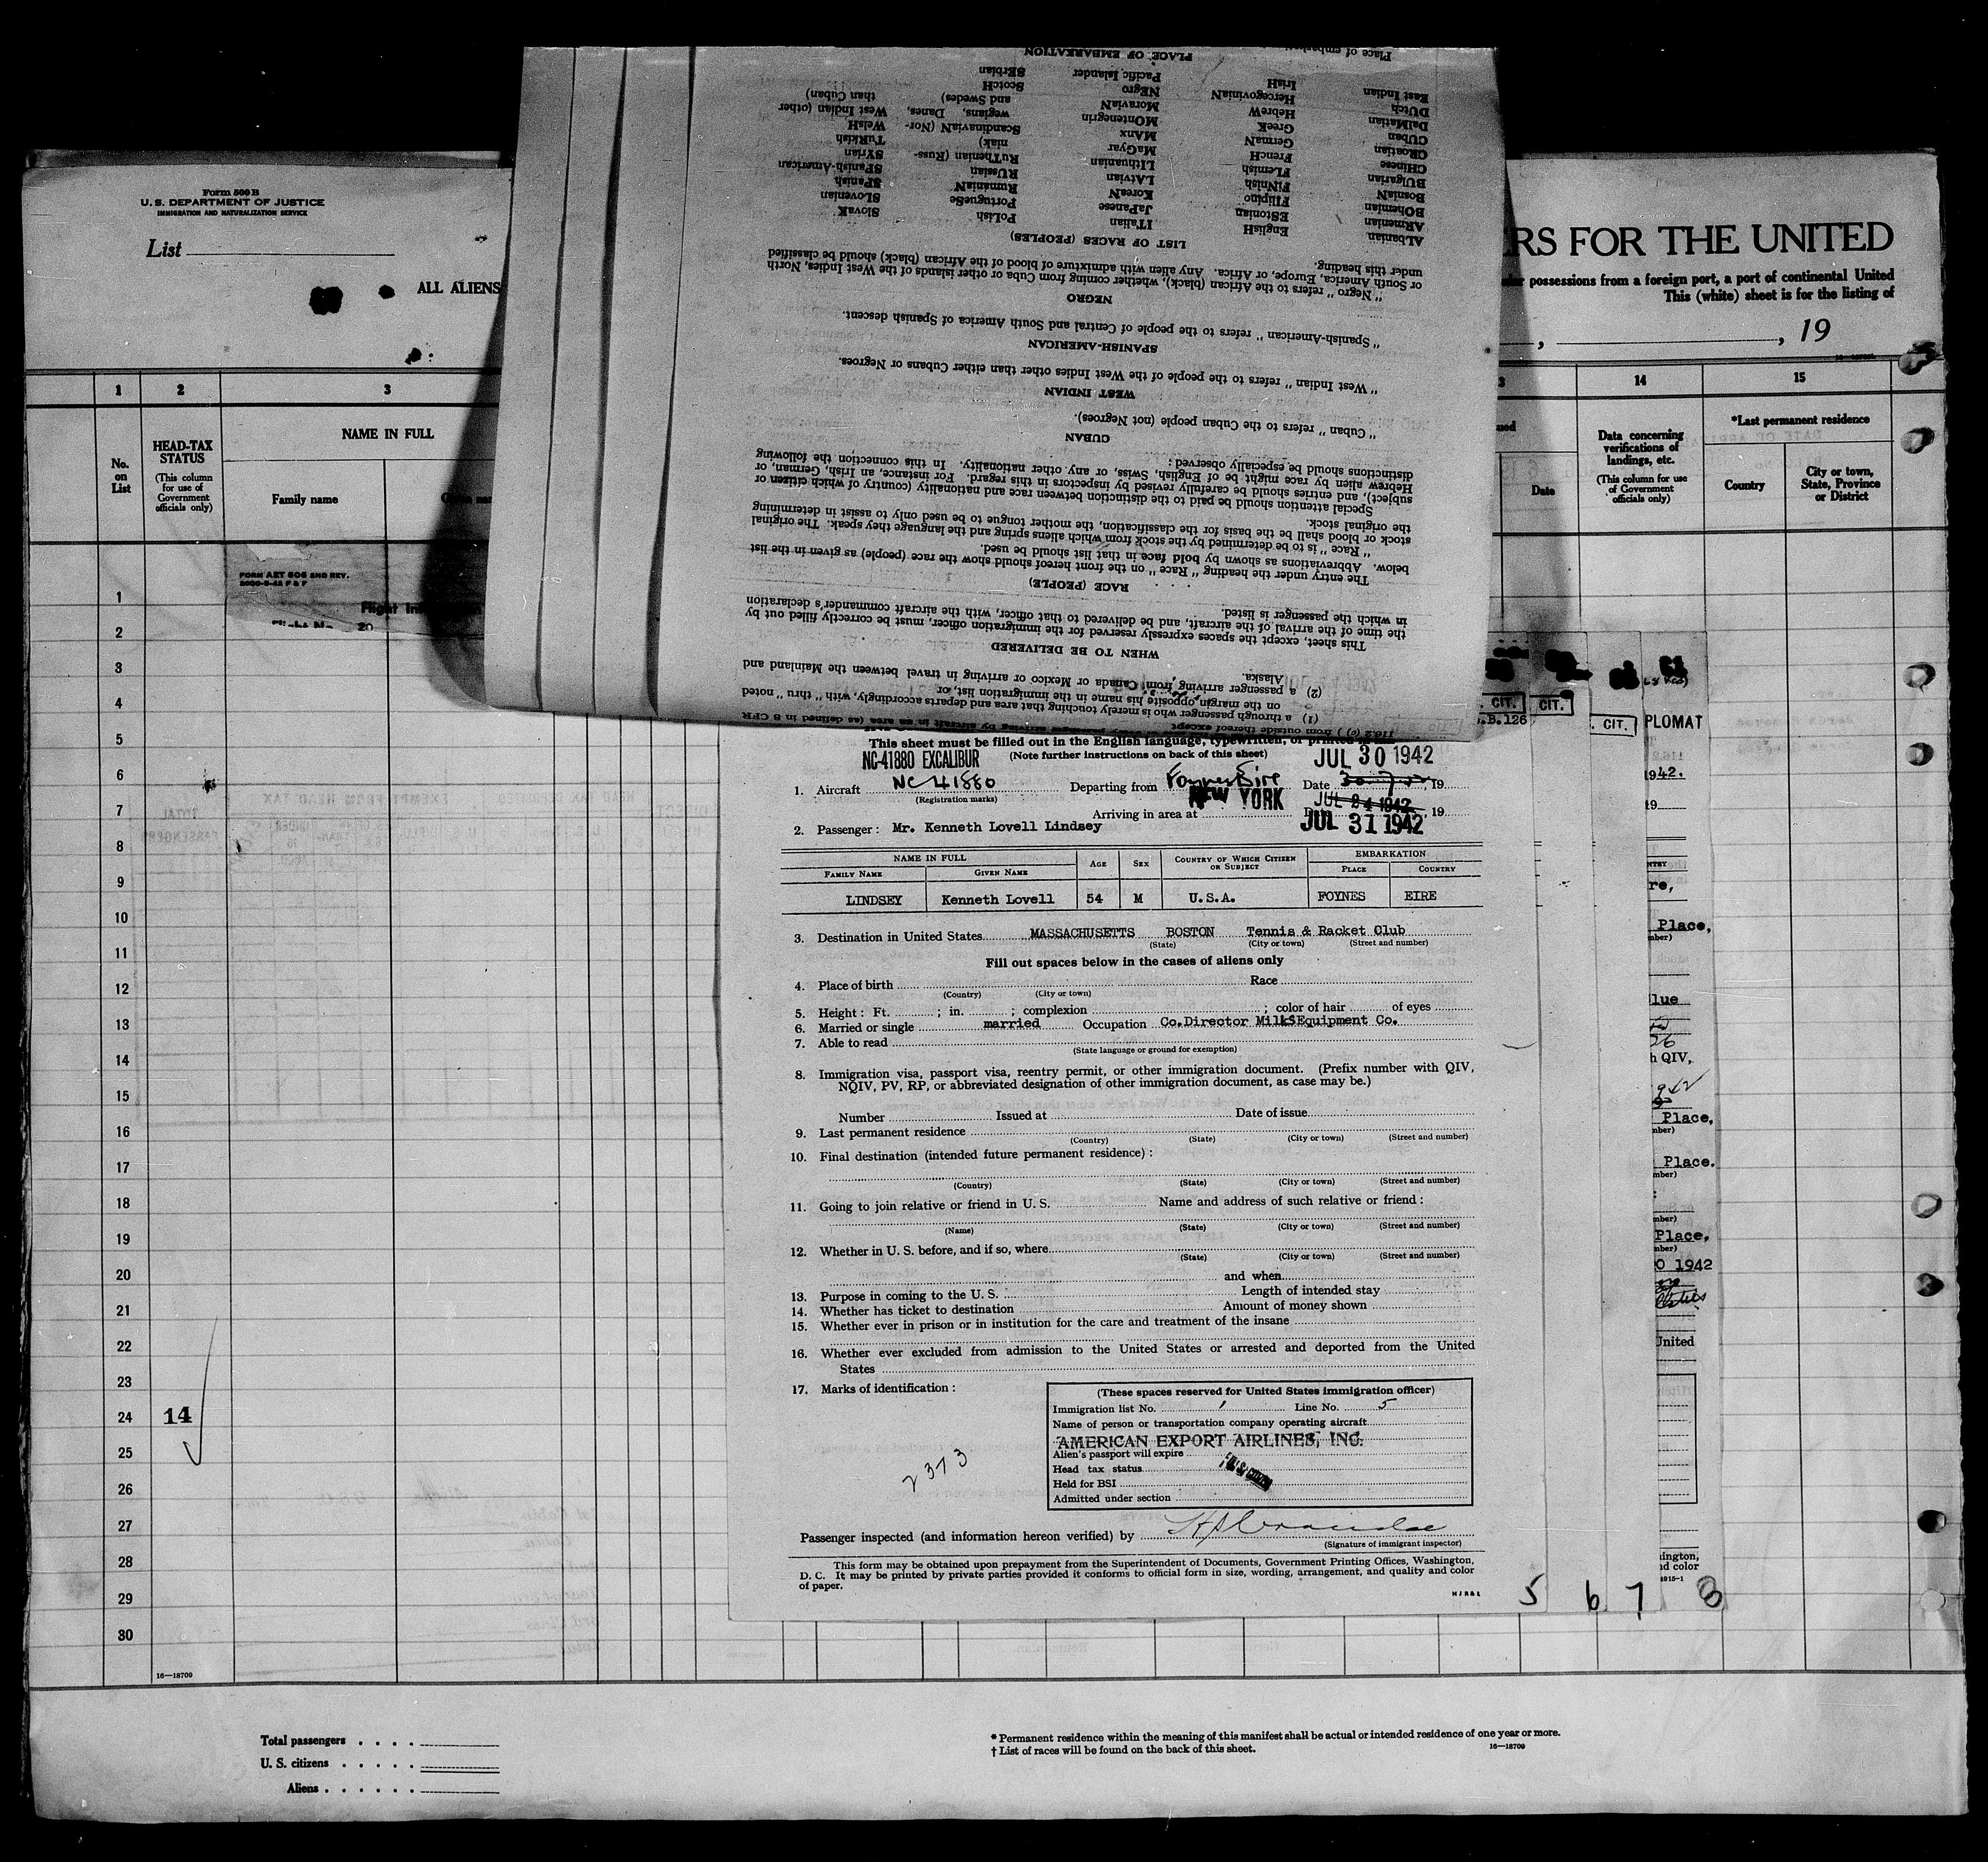 Form 500 B
U. S. DEPARTMENT OF JUSTICE
IMMIGRATION AND NATURALIZATION SERVICE
List
ALL ALIENS
RS FOR THE UNITED
possessions from a foreign port, a port of continental United
This (white) sheet is for the listing of
, , 19
1 2 3 14 15
No. on List
HEAD-TAX STATUS
(This column for use of Government officials only)
NAME IN FULL
Family name
Date
Data concerning verifications of landings, etc.
(This column for use of Government officials only)
*Last permanent residence
Country
City or town, State, Province or District
FORM AET 606 2ND REV.
1
2
3
4
5
6
7
8
9
10
11
12
13
14
15
16
17
18
19
20
21
22
23
24
14
25
26
27
28
29
30
16—18709
Total passengers . . . .
U. S. citizens . . . . .
Aliens . . . . . .
* Permanent residence within the meaning of this manifest shall be actual or intended residence of one year or more.
† List of races will be found on the back of this sheet.
16—18709
(1) a through passenger who is merely touching that area and departs accordingly, with "thru" noted
on the margin, opposite his name in the immigration list, or
(2) a passenger arriving from Canada or Mexico or arriving in travel between the Mainland and
Alaska.
WHEN TO BE DELIVERED
This sheet, except the spaces expressly reserved for the immigration officer, must be correctly filled out by
the time of the arrival of the aircraft, and be delivered to that officer, with the aircraft commander's declaration
in which the passenger is listed.
RACE (PEOPLE)
The entry under the heading "Race" on the front hereof should show the race (people) as given in the list
below. Abbreviations as shown by bold face in that list should be used.
"Race" is to be determined by the stock from which aliens spring and the language they speak. The original
stock or blood shall be the basis for the classification, the mother tongue to be used only to assist in determining
the original stock.
Special attention should be paid to the distinction between race and nationality (country of which citizen or
subject), and entries should be carefully revised by inspectors in this regard. For instance, an Irish, German, or
Hebrew alien by race might be of English, Swiss, or any other nationality. In this connection the following
distinctions should be especially observed:
CUBAN
"Cuban" refers to the Cuban people (not Negroes).
WEST INDIAN
"West Indian" refers to the people of the West Indies other than either Cubans or Negroes.
SPANISH-AMERICAN
"Spanish-American" refers to the people of Central and South America of Spanish descent.
NEGRO
"Negro" refers to the African (black), whether coming from Cuba or other islands of the West Indies, North
or South America, Europe, or Africa. Any alien with admixture of blood of the African (black) should be classified
under this heading.
LIST OF RACES (PEOPLES)
ALbanian EnglisH ITalian PoLish SlovaK
ARmenian EStonian JaPanese PortugueSe SLovenian
BOhemian FIlipino KoreaN RumaniaN SPanish
BosniaN FiNnish LAtvian RUssian SPanish-American
BUlgarian FLemish LIthuanian RuThenian (Russ- SYrian
CHinese FrencH MaGyar niak) TuRkish
CRoatian GermaN MAnx ScandinaviaN (Nor- WelsH
CUban GreeK MOntenegrin wegians, Danes, West Indian (other
DalMatian HebreW MoraviaN and Swedes) than Cuban)
DUtch HercegoviniaN NEgro ScotcH
East Indian IrisH Pacific Islander SErbian
PLACE OF EMBARKATION
This sheet must be filled out in the English language, typewritten, or printed
(Note further instructions on back of this sheet)
NC-41880 EXCALIBUR
JUL 30 1942
1. Aircraft NC 41880 Departing from Foynes Eire Date 30-7- , 19
(Registration marks)
NEW YORK
JUL 24 1942
Arriving in area at , 19
JUL 31 1942
2. Passenger: Mr. Kenneth Lovell Lindsey
NAME IN FULL AGE SEX COUNTRY OF WHICH CITIZEN OR SUBJECT EMBARKATION
FAMILY NAME GIVEN NAME PLACE COUNTRY
LINDSEY Kenneth Lovell 54 M U.S.A. FOYNES EIRE
3. Destination in United States MASSACHUSETTS BOSTON Tennis & Racket Club
(State) (City or town) (Street and number)
Fill out spaces below in the cases of aliens only
4. Place of birth Race
(Country) (City or town)
5. Height: Ft. ; in. ; complexion ; color of hair of eyes
6. Married or single married Occupation Co.Director Milk$Equipment Co.
7. Able to read
(State language or ground for exemption)
8. Immigration visa, passport visa, reentry permit, or other immigration document. (Prefix number with QIV,
NQIV, PV, RP, or abbreviated designation of other immigration document, as case may be.)
Number Issued at Date of issue
9. Last permanent residence
(Country) (State) (City or town) (Street and number)
10. Final destination (intended future permanent residence):
(Country) (State) (City or town) (Street and number)
11. Going to join relative or friend in U. S. Name and address of such relative or friend:
(Name) (State) (City or town) (Street and number)
12. Whether in U. S. before, and if so, where
(State) (City or town) (Street and number)
and when
13. Purpose in coming to the U. S. Length of intended stay
14. Whether has ticket to destination Amount of money shown
15. Whether ever in prison or in institution for the care and treatment of the insane
16. Whether ever excluded from admission to the United States or arrested and deported from the United
States
17. Marks of identification:
(These spaces reserved for United States immigration officer)
Immigration list No. 1 Line No. 5
Name of person or transportation company operating aircraft
AMERICAN EXPORT AIRLINES, INC.
Alien's passport will expire
Head tax status
Held for BSI
Admitted under section
2373
Passenger inspected (and information hereon verified) by
(Signature of immigrant inspector)
This form may be obtained upon prepayment from the Superintendent of Documents, Government Printing Offices, Washington,
D. C. It may be printed by private parties provided it conforms to official form in size, wording, arrangement, and quality and color
of paper.
5 6 7 8
CIT.
CIT.
CIT.
.B.126
PLOMAT
1942.
19
re,
Place,
lue
h QIV,
Place,
Place.
Place,
0 1942
United
ington,
nd color